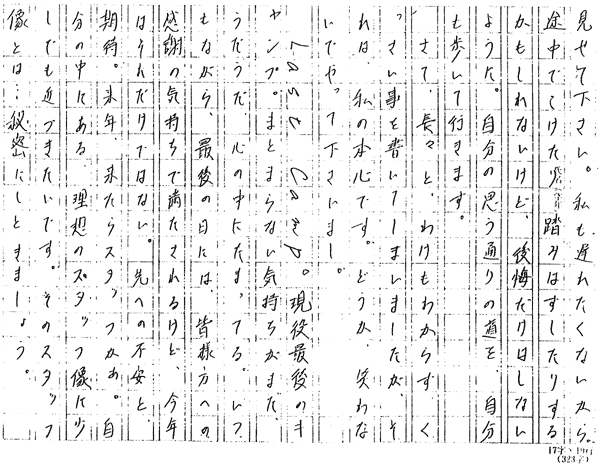 見せて下さい。私も遅れたくないから。
途中でこけたり、踏みはずしたりする
かもしれないけど、後悔だけはしない
ように。自分の思う通りの道を、自分
も歩いて行きます。
さて、長々と、わけもわからず、く
っさい事を書いてしまいましたが、そ
れは、私の本心です。どうか、笑わな
いでやって下さいまし。
Last Camp。現役最後のキ
ャンプ。まとまらない気持ちがまだ、
うだうだ、心の中にたまってる。いつ
もながら、最後の日には、皆様方への
感謝の気持ちで満たされるけど、今年
はそれだけではない。先への不安と、
期待。来年、来たらスタッフかぁ。自
分の中にある、理想のスタッフ像に少
しでも近づきたいです。そのスタッフ
像とは…秘密にしときましょう。
17字×19行
(323字)